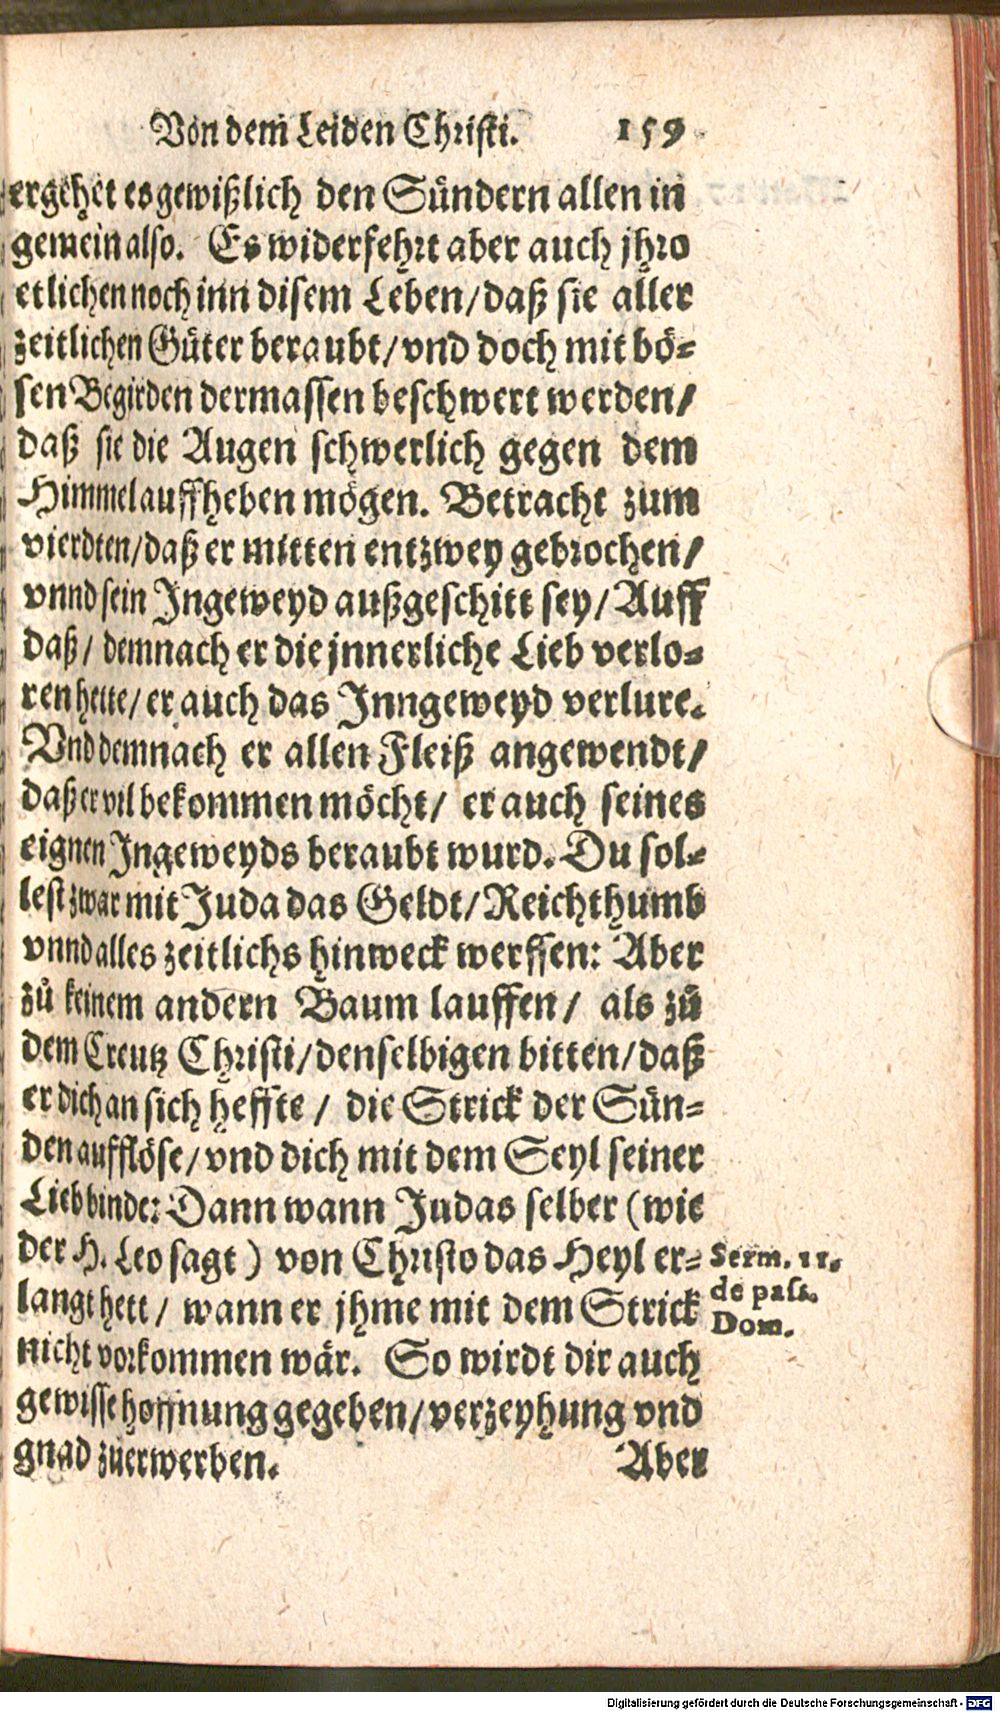 Von dem Leiden Christi. 159
ergehet es gewißlich den Sündern allen in
gemein also. Es widerfehrt aber auch jhro
etlichen noch inn disem Leben/daß sie aller
zeitlichen Güter beraubt/vnd doch mit bö-
sen Begirden dermassen beschwert werden/
daß sie die Augen schwerlich gegen dem
Himmel auffheben mögen. Betracht zum
vierdten/daß er mitten entzwey gebrochen/
vnnd sein Ingeweyd außgeschitt sey/Auff
daß/ demnach er die jnnerliche Lieb verlo-
ren hette/er auch das Inngeweyd verlure.
Vnd demnach er allen Fleiß angewendt/
daß er vil bekommen möcht/ er auch seines
eignen Ingeweyds beraubt wurd. Du sol-
lest zwar mit Juda das Geldt/Reichthumb
vnnd alles zeitlichs hinweck werffen: Aber
zů keinem andern Baum lauffen/ als zů
dem Creutz Christi/denselbigen bitten/daß
er dich an sich heffte/ die Strick der Sün-
den aufflöse/vnd dich mit dem Seyl seiner
Lieb binde: Dann wann Judas selber (wie
der H. Leo sagt) von Christo das Heyl er-
langt hett/ wann er jhme mit dem Strick
nicht vorkommen wär. So wirdt dir auch
gewisse hoffnung gegeben/verzeyhung vnd
gnad zuerwerben. Aber
Serm. 11.
de pass.
Dom.
Digitalisierung gefördert durch die Deutsche Forschungsgemeinschaft - DFG